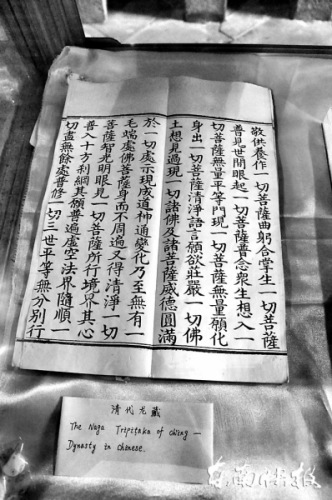 敬供養作一切菩薩曲躬合掌生一切菩薩
普見世間眼起一切菩薩普念衆生想入一
切菩薩無量平等門現一切菩薩無量願化
身出一切菩薩清淨語言願欲莊嚴一切佛
土想見過現一切諸佛及諸菩薩威德圓滿
於一切處示現成道神通變化乃至無有一
毛端處佛菩薩身而不周遍又得清淨一切
菩薩智光明眼見一切菩薩所行境界其心
普入十方刹網其願普遍虛空法界隨順一
切盡無餘處普修一切三世平等無分別行
清代龙藏
The Naga Tripitaka of Ching —
Dynasty in Chinese.
东南快报